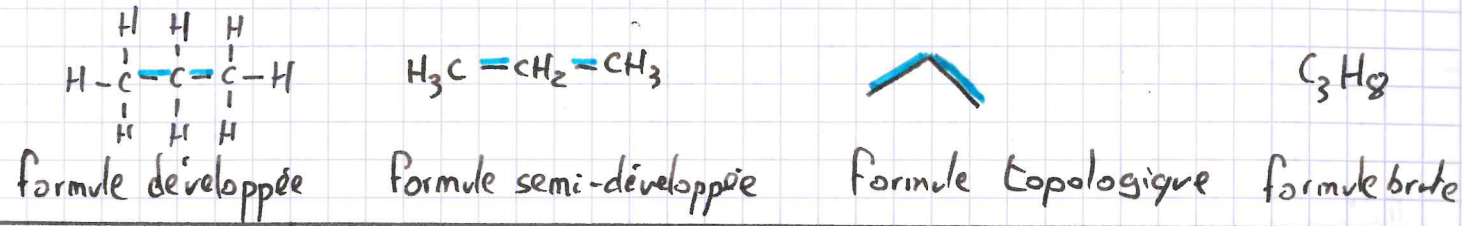 H H H
H-C-C-C-H
H H H
H₃C-CH₂-CH₃
C₃H₈
formule développée
formule semi-développée
formule topologique
formule brute